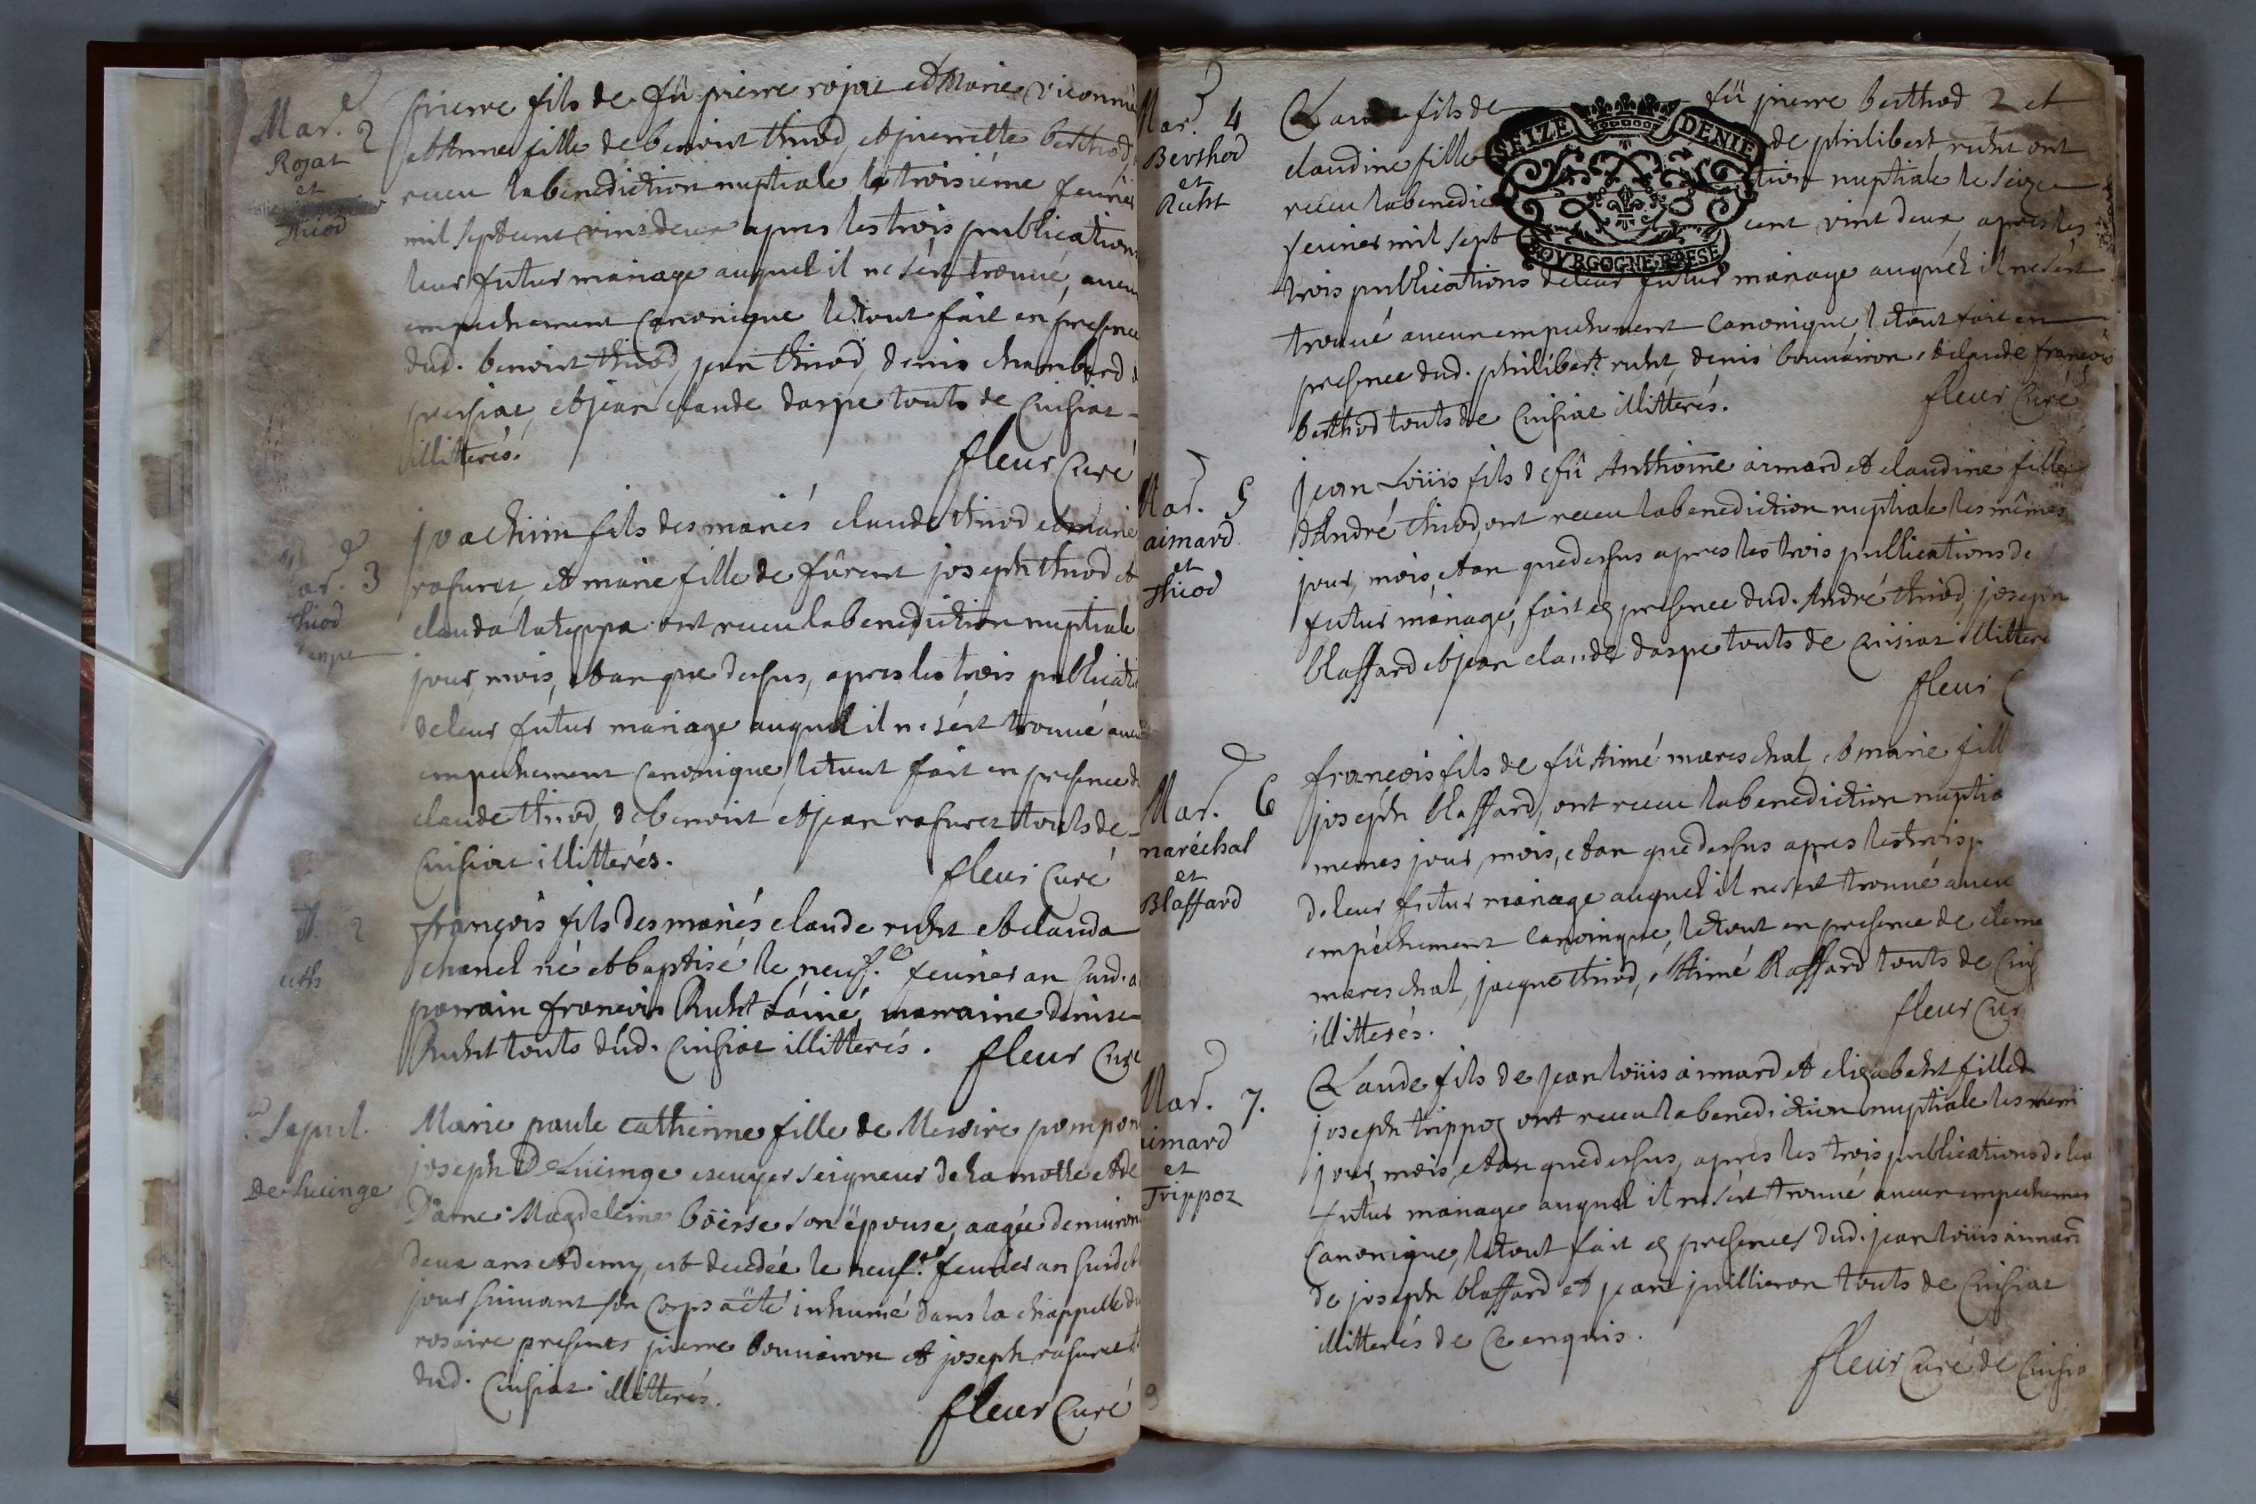 Mar.e 2
Rojat
et
Thiod
pierre fils de fû pierre rojat et Marie viconnie
et Anne fille de benoist thiod, et pierrette berthod,
receu la benediction nuptiale le troisiéme feurier
mil sept cent vint deux apres les trois publication
leur futur mariage auquel il ne s'ést trouué, aucu
empechement Canonique le tout fait en presence
dud. benoist thiod, jean thiod, denis chambard
pressiat, et jean claude darpe touts de Cuisiat
illitterés.
fleur Curé
ar.e 3
thiod
joachim fils des mariés claude thiod et marie
rafuret, et marie fille de fûrent joseph thiod et
clauda lateppa ont receu la benediction nuptiale
jour, mois, et an que dessus, apres les trois publicati
de leur futur mariage auquel il ne s'ést trouué aucu
empechement Canonique, le tout fait en presence d
claude thiod, de benoist et jean rafuret touts de
Cuisiat illitterés.
fleur Curé
2
françois fils des mariés claude ruht et clauda
chanel né et baptisé le neuf.e feurier an susd. a
parrain françois Ruht L'áiné, marraine denise
Ruht touts dud. Cuisiat illitterés.
fleur Cure
Sepul.
De Lucinge
Marie paule catherine fille de Messire pompon
joseph De Lucinge escuyer seigneur de la motte et de
Dame Magdeleine böirse son épouse, aagée d'enuiron
deux ans et demy, est decedée le neuf.e feurier an susd et
jour suiuant son Corps a été inhumé dans la chappelle du
rosaire presents pierre bouuairon et joseph rafuret
dud. Cuisiat illitterés.
fleur Curé
Mar.e 4
Berthod
et
Ruht
SEIZE DENIE
BOVRGOGNE BRESE
Claude fils de fû pierre berthod 2 et
claudine fille de philibert ruht ont
receu la benediction nuptiale le seize
feurier mil sept cent vint deux, apres les
trois publications de leur futur mariage auquel il ne s'ést
trouué aucun empechement Canonique, le tout fait en
presence dud. philibert ruht, denis bouuairon, et claude françois
berthod touts de Cuisiat illitterés.
fleur Curé
Mar. 5
aimard
et
Thiod
jean Loüis fils de fû Anthoine aimard et claudine fille
d'André thiod, ont receu la benediction nuptiale les mêmes
jour, mois, et an que dessus apres les trois publications de
futur mariage, fait en presence dud. André thiod, joseph
blaffard et jean claude darpe touts de Cuisiat illittere
fleur C
Mar.e 6
maréchal
et
Blaffard
françois fils de fû Aimé mareschal, et marie fill
joseph blaffard, ont receu la benediction nuptia
memes jour, mois, et an que dessus apres les trois p
de leur futur mariage auquel il ne s'ést trouué aucu
empéchement canonique, le tout en presence de
mareschal, jacque thiod, et Aimé Raffard touts de Cuis
illitterés.
fleur Cur
Mar.e 7.
aimard
et
Trippoz
Claude fils de jean loüis aimard et elizabeht fille d
joseph trippoz ont receu la benediction nuptiale les mém
jour, mois, et an que dessus, apres les trois publications de leu
futur mariage auquel il ne s'ést trouué aucun empechemen
Canonique, le tout fait en presences dud. jean loüis aimard
de joseph blaffard et jean juillieron touts de Cuisiat
illitterés de Ce enquis.
fleur Curé de Cuisia